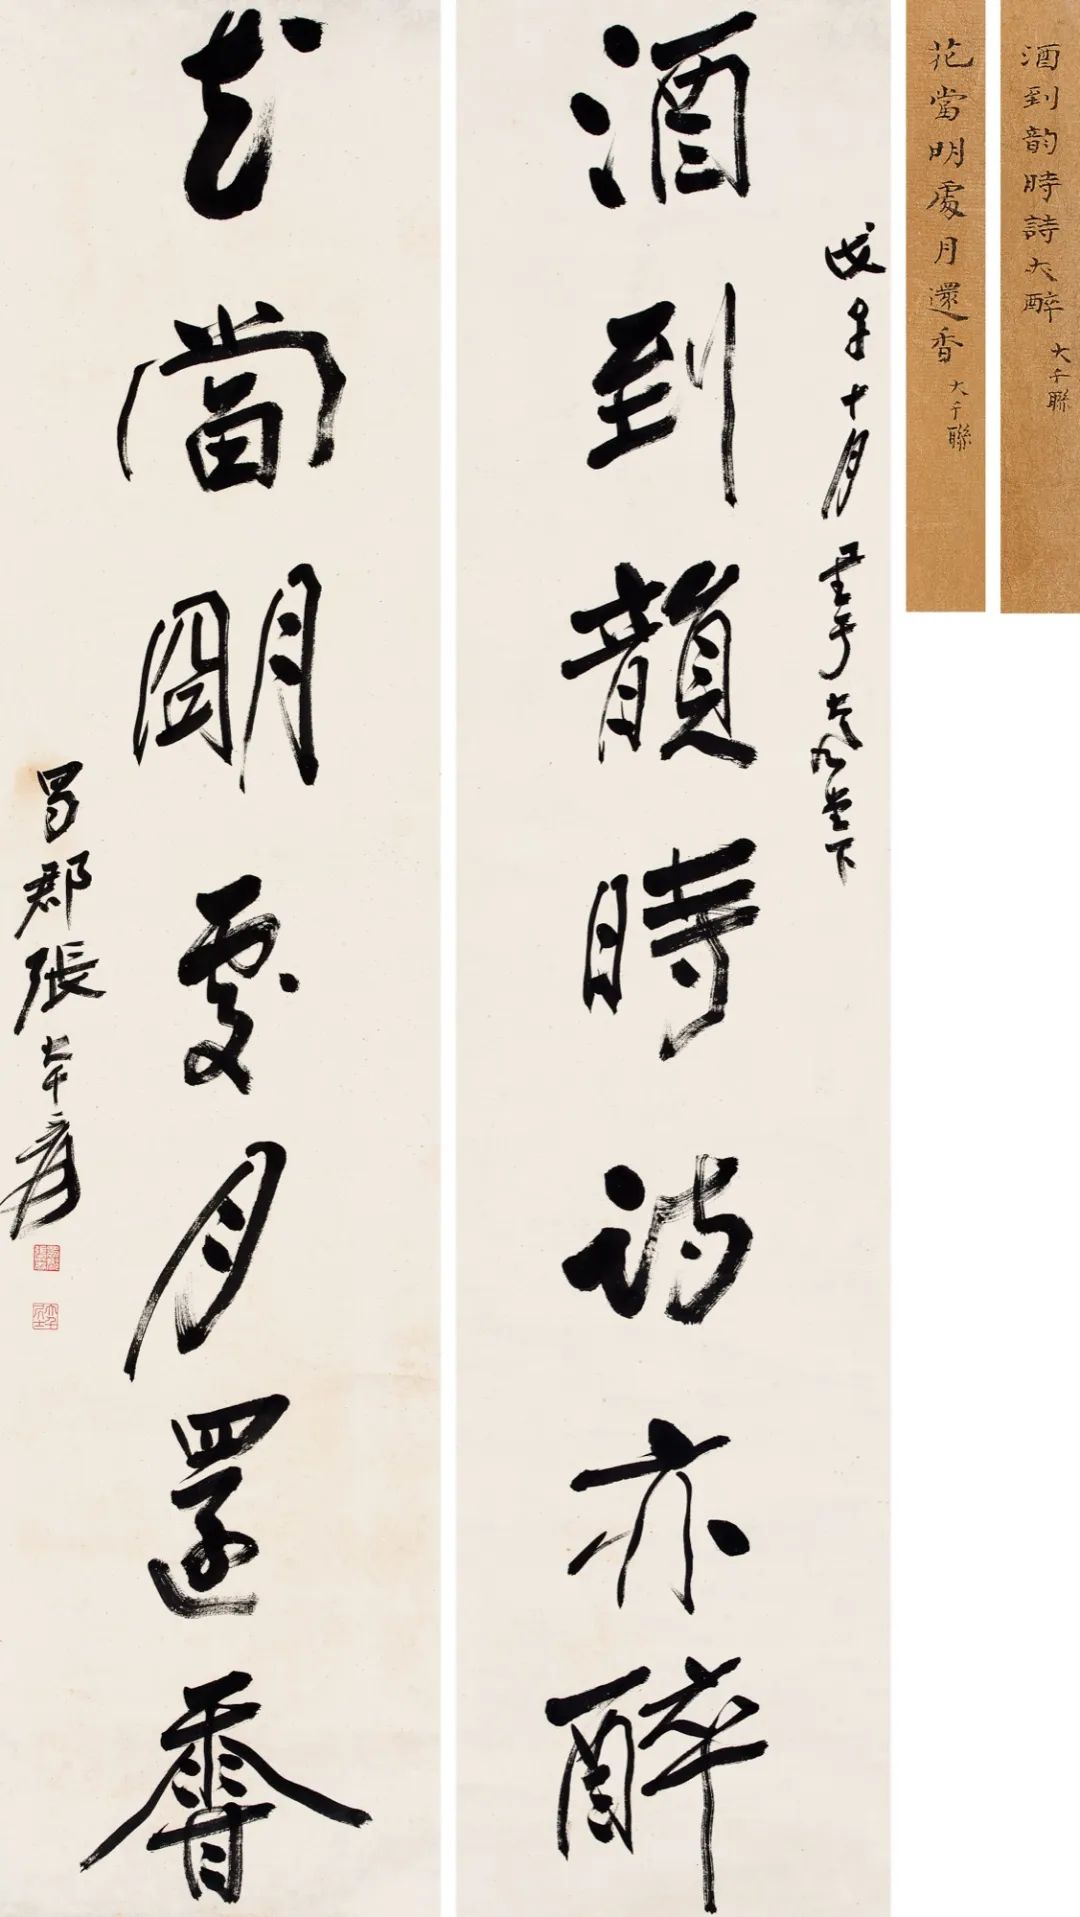 酒到韵時詩亦醉
大千聯
花當明處月還香
大千聯
戊子十月書於大風堂下
酒到韻時詩亦醉
花當朙處月還香
蜀郡張大千爰